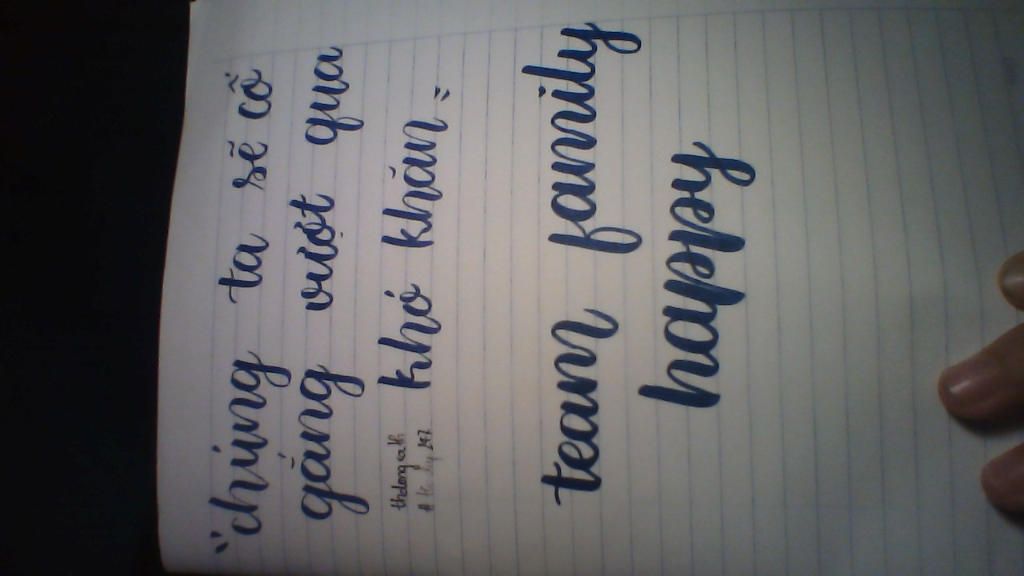 "chúng ta sẽ cố
gắng vượt qua
khó khăn"
team family
happy